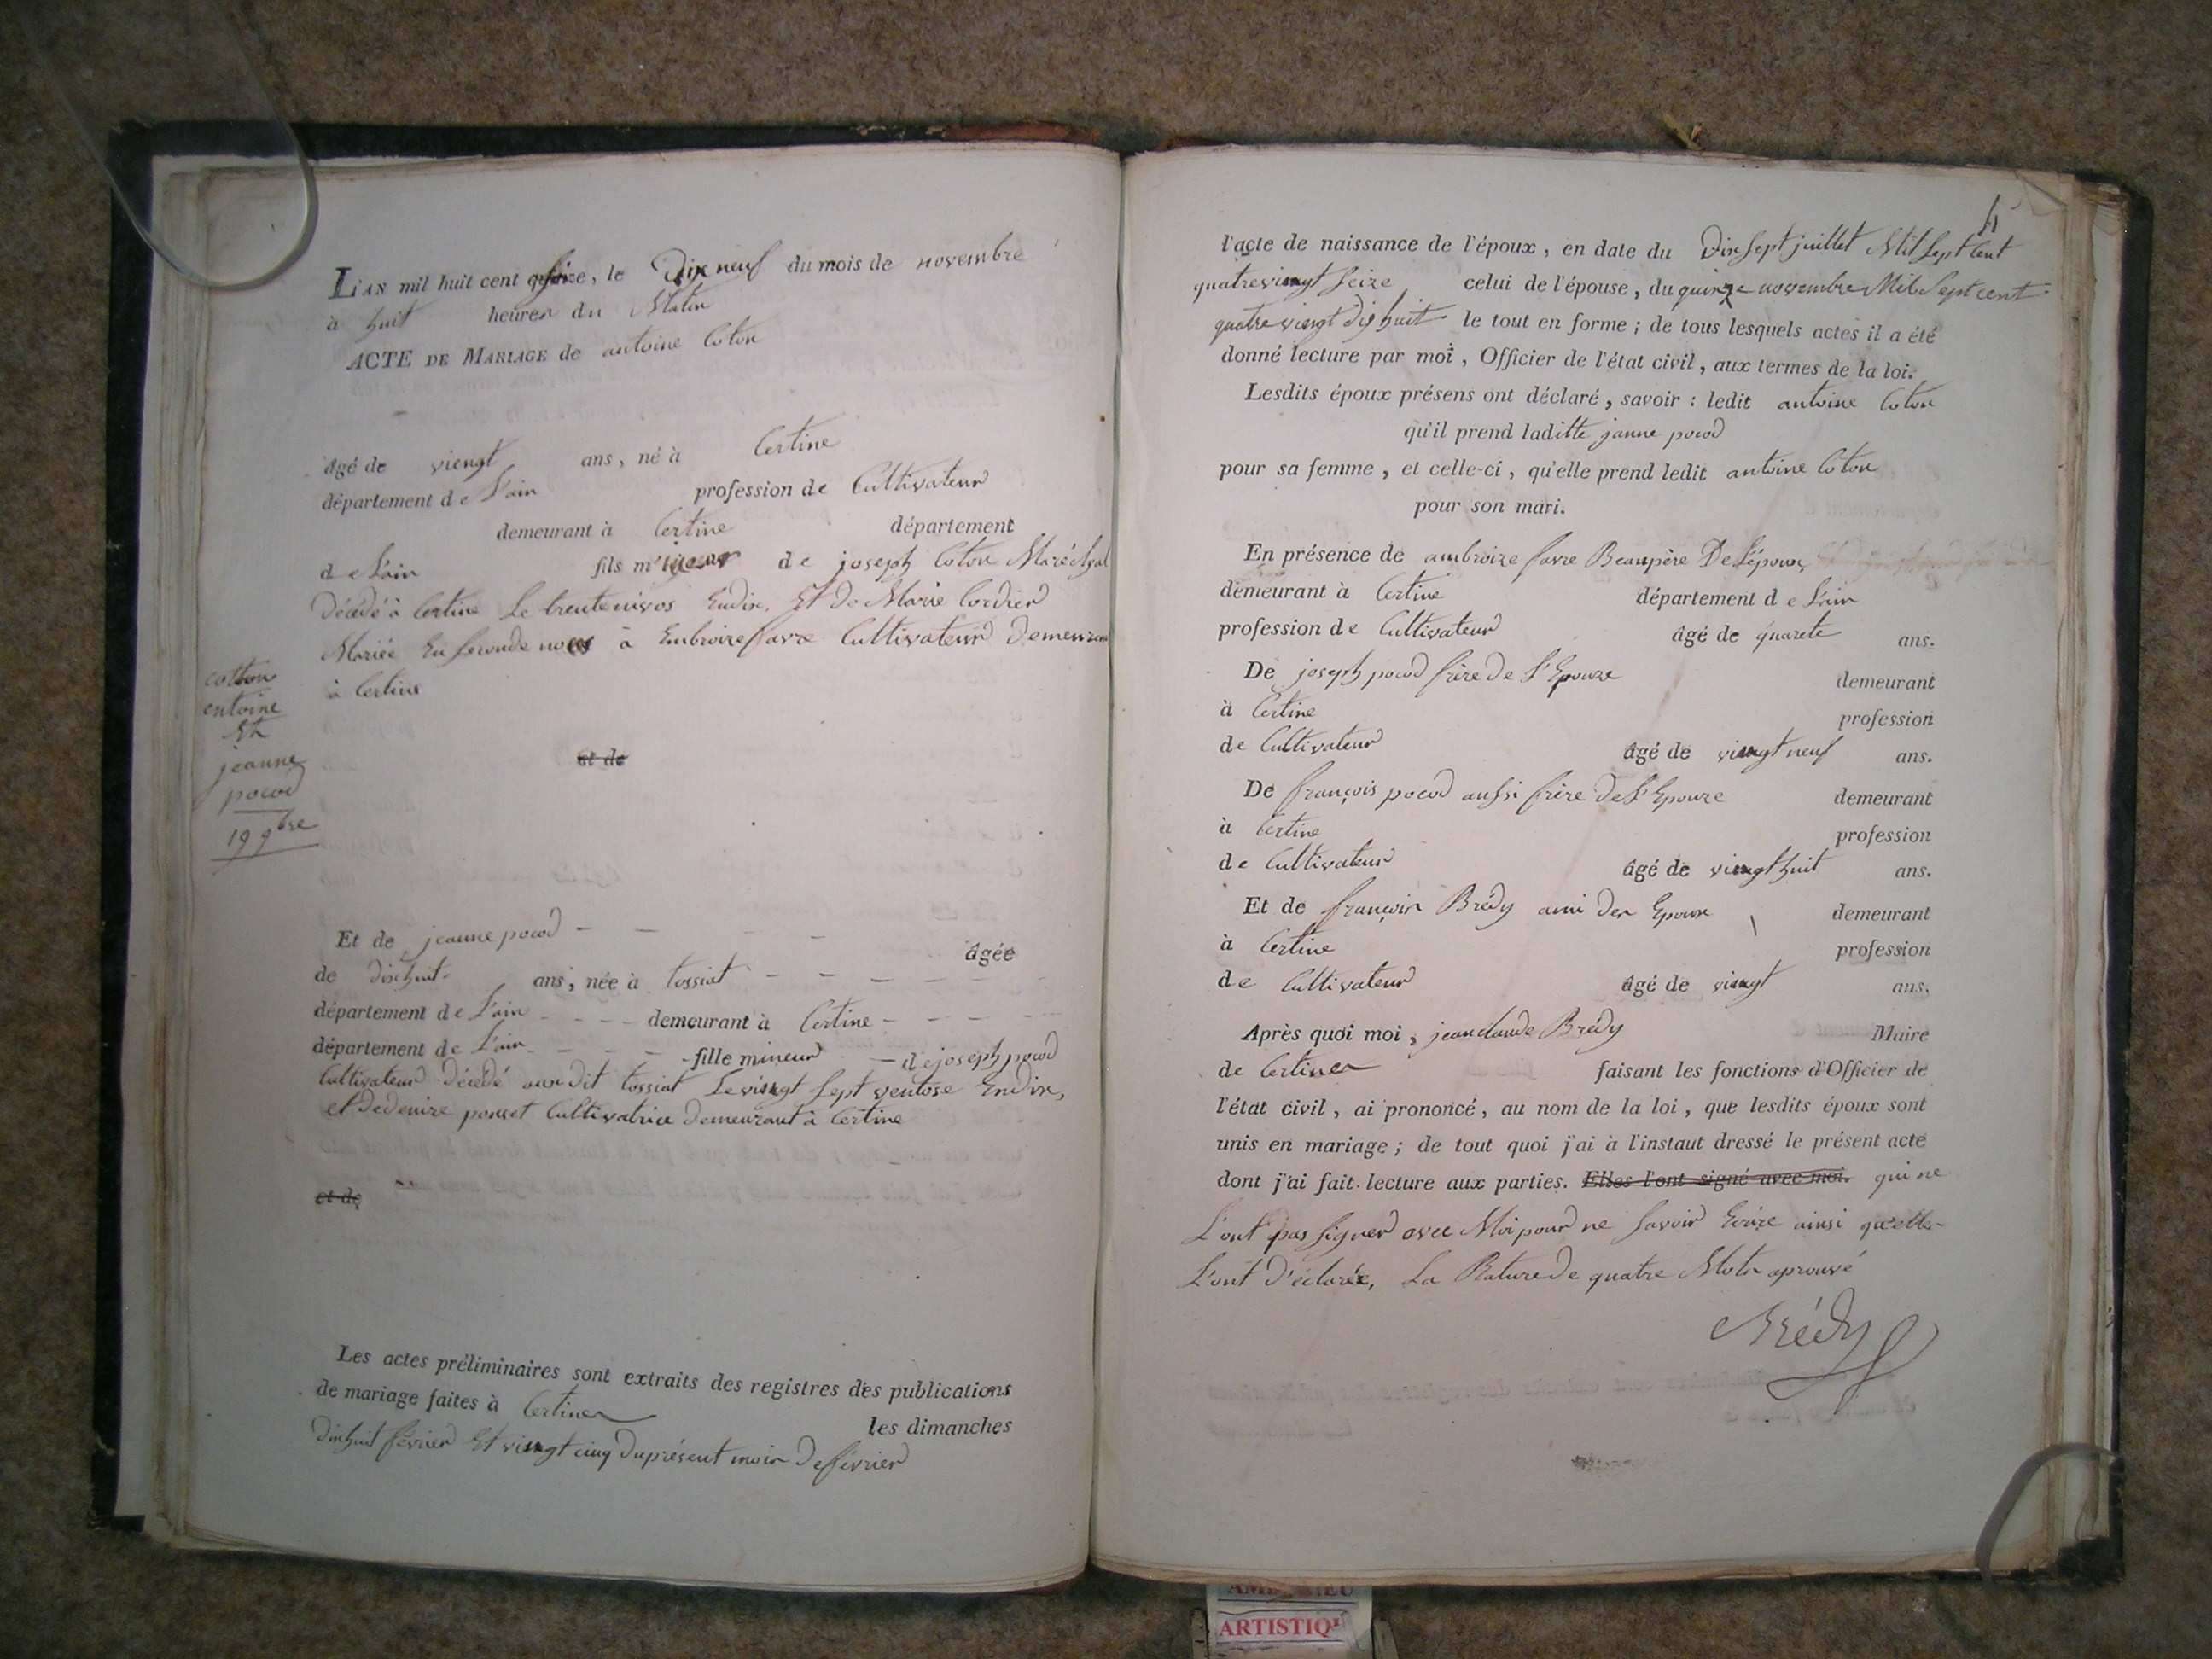 L'an mil huit cent seize, le Dix neuf du mois de novembre
à huit heures du Matin
ACTE DE MARIAGE de antoine Coton
âgé de viengt ans, né à Certine
département de L'ain profession de Cultivateur
demeurant à Certine département
de L'ain fils mineur de joseph Coton Maréchal
Décédé à Certine Le trente nivos Endix, Et de Marie Cordier
Mariée En seconde noces à Embroire favre Cultivateur Demeurant
à Certine
cotton
entoine
Et
jeanne
pocod
19 9bre
et de
Et de jeanne pocod âgée
de dixhuit ans, née à tossiat
département de L'ain demeurant à Certine
département de L'ain fille mineur de joseph pocod
Cultivateur décédé audit tossiat Le viengt sept ventose Endix,
et de denize poncet Cultivatrice Demeurant à Certine
et de
Les actes préliminaires sont extraits des registres des publications
de mariage faites à Certines les dimanches
Dixhuit février Et viengt cinq Du présent mois De février
l'acte de naissance de l'époux, en date du Dix sept juillet Mil sept Cent
quatre viengt seize celui de l'épouse, du quinze novembre Mil Sept cent
quatre viengt dix huit le tout en forme; de tous lesquels actes il a été
donné lecture par moi, Officier de l'état civil, aux termes de la loi.
Lesdits époux présens ont déclaré, savoir : ledit antoine Coton
qu'il prend laditte janne pocod
pour sa femme, et celle-ci, qu'elle prend ledit antoine Coton
pour son mari.
En présence de ambroize favre Beaupère De L'époux
demeurant à Certine département de L'ain
profession de Cultivateur âgé de quarete ans.
De joseph pocod frère de L'Epouze demeurant
à Certine profession
de Cultivateur âgé de viengt neuf ans.
De françois pocod aussi frère De L'Epouze demeurant
à Certine profession
de Cultivateur âgé de viengt huit ans.
Et de françois Brédy ami des Epoux demeurant
à Certine profession
de Cultivateur âgé de viengt ans.
Après quoi moi, jean claude Brédy Maire
de Certines faisant les fonctions d'Officier de
l'état civil, ai prononcé, au nom de la loi, que lesdits époux sont
unis en mariage; de tout quoi j'ai à l'instaut dressé le présent acte
dont j'ai fait lecture aux parties. Elles l'ont signé avec moi. qui ne
L'ont pas signer avec Moi pour ne savoir Ecrire ainsi qu'elle
L'ont D'éclarée, La Rature De quatre Mots aprouvé
Brédy
ARTISTIQ